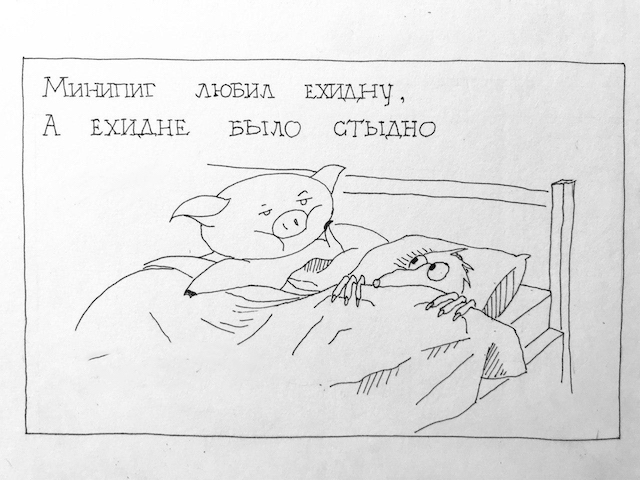 Минипиг любил ехидну,
А ехидне было стыдно